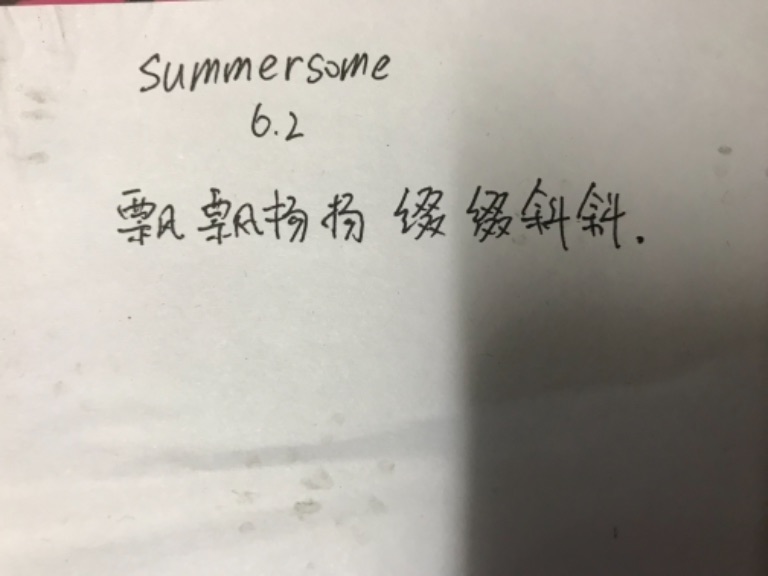 summersome
6.2
飘飘扬扬 缀缀斜斜.